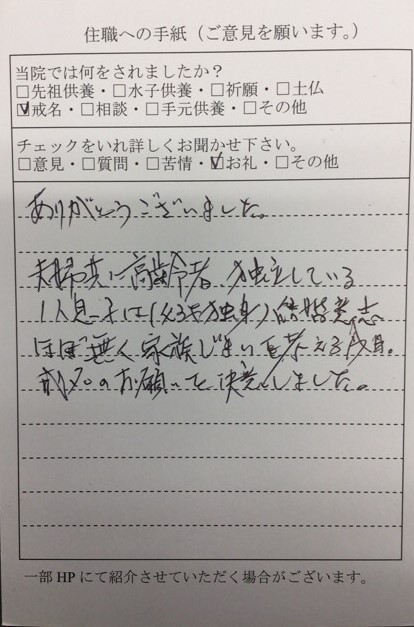 住職への手紙（ご意見を願います。）
当院では何をされましたか？
□先祖供養・□水子供養・□祈願・□土仏
☑戒名・□相談・□手元供養・□その他
チェックをいれ詳しくお聞かせ下さい。
□意見・□質問・□苦情・☑お礼・□その他
ありがとうございました。
夫婦共に高齢者、独立している
1人息子は（43才独身）結婚意志
ほぼ無く家族じまいを考える
戒名のお願いを決意しました。
一部HPにて紹介させていただく場合がございます。